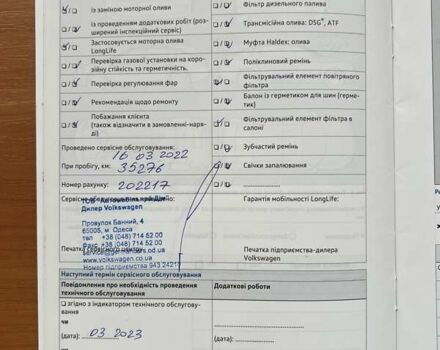 із заміною моторної оливи
із проведенням додаткових робіт (роз-
ширений інспекційний сервіс)
Застосовується моторна олива
LongLife
Перевірка газової установки на коро-
зійну стійкість та герметичність.
Перевірка регулювання фар
Рекомендація щодо ремонту
Побажання клієнта
(також відзначити в замовленні-наря-
ді)
Фільтр дизельного палива
Трансмісійна олива: DSG®, ATF
Муфта Haldex: олива
Поліклиновий ремінь
Фільтрувальний елемент повітряного
фільтра
Балон із герметиком для шин (герме-
тик)
Фільтрувальний елемент фільтра в
салоні
Зубчастий ремінь
Свічки запалювання
Проведено сервісне обслуговування:
16 03 2022
При пробігу, км: 35276
Номер рахунку: 202217
Сервісне обслуговування
Дилер Volkswagen
Провулок Банний, 4
65005, м. Одеса
тел +38 (048) 714 52 00
Факс +38 (048) 714 52 00
www.volkswagen.co.ua
Номер підприємства 943 24217
Печатка сервісного центру
Гарантія мобільності LongLife:
Печатка підприємства-дилера
Volkswagen
Наступний термін сервісного обслуговування
Повідомлення про необхідність проведення
технічного обслуговування
Додаткові роботи
згідно з індикатором технічного обслугову-
вання
чи
03 2023
(дата):
(дата):